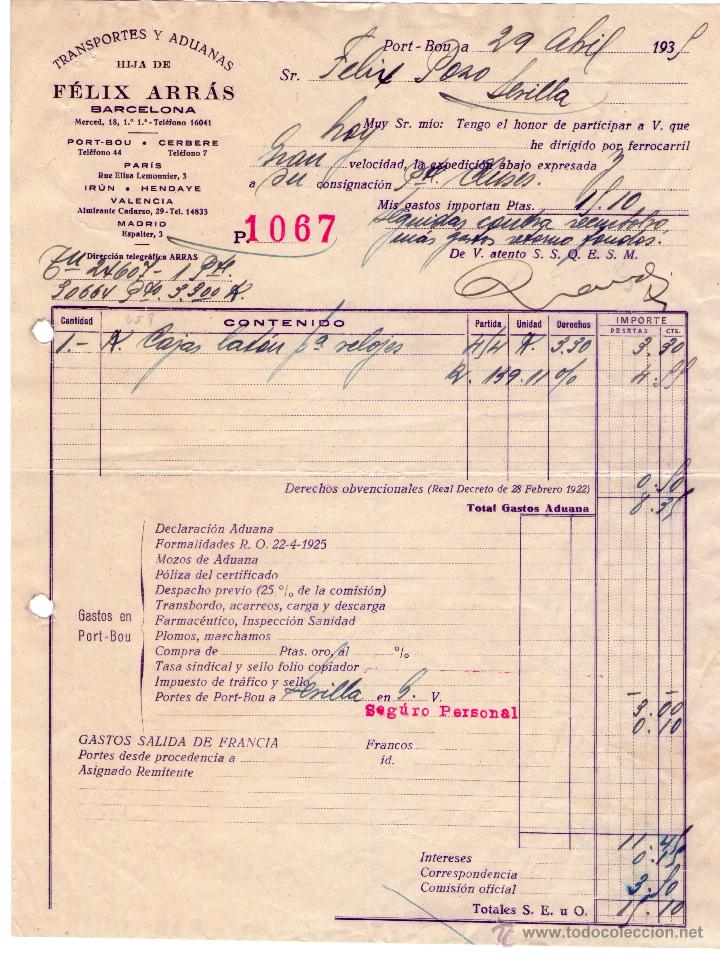 TRANSPORTES Y ADUANAS
HIJA DE
FÉLIX ARRÁS
BARCELONA
Merced, 18, 1.º 1.ª - Teléfono 16041
PORT-BOU • CERBERE
Teléfono 44 Teléfono 7
PARÍS
Rue Elisa Lemonnier, 3
IRÚN • HENDAYE
VALENCIA
Almirante Cadarso, 29 - Tel. 14833
MADRID
Espalter, 3
Dirección telegráfica ARRAS
24607 - 1 Pta.
30664 Pts 3.300 K.
Port-Bou a 29 Abril 1935
Sr. Felix Pozo
Sevilla
Muy Sr. mio: Tengo el honor de participar a V. que
hoy he dirigido por ferrocarril
Gran velocidad, la expedición abajo expresada
a su consignación
Mis gastos importan Ptas. 15.10
contra reembolso,
mas gastos retorno fondos.
De V. atento S. S. Q. E. S. M.
P. 1067
Cantidad CONTENIDO Partida Unidad Derechos IMPORTE
PESETAS CTS.
1.- K. Cajas laton pa relojes 4/4 K. 3.30 3.30
2. 139.11 % 4.55
Derechos obvencionales (Real Decreto de 28 Febrero 1922) 0.50
Total Gastos Aduana 8.35
Gastos en Port-Bou
Declaración Aduana
Formalidades R. O. 22-4-1925
Mozos de Aduana
Póliza del certificado
Despacho previo (25 % de la comisión)
Transbordo, acarreos, carga y descarga
Farmacéutico, Inspección Sanidad
Plomos, marchamos
Compra de Ptas. oro, al %
Tasa sindical y sello folio copiador
Impuesto de tráfico y sello
Portes de Port-Bou a Sevilla en G. V. 3.00
Seguro Personal 0.10
GASTOS SALIDA DE FRANCIA Francos
Portes desde procedencia a id.
Asignado Remitente
11.45
Intereses 0.15
Correspondencia
Comisión oficial 3.50
Totales S. E. u O. 15.10
www.todocoleccion.net